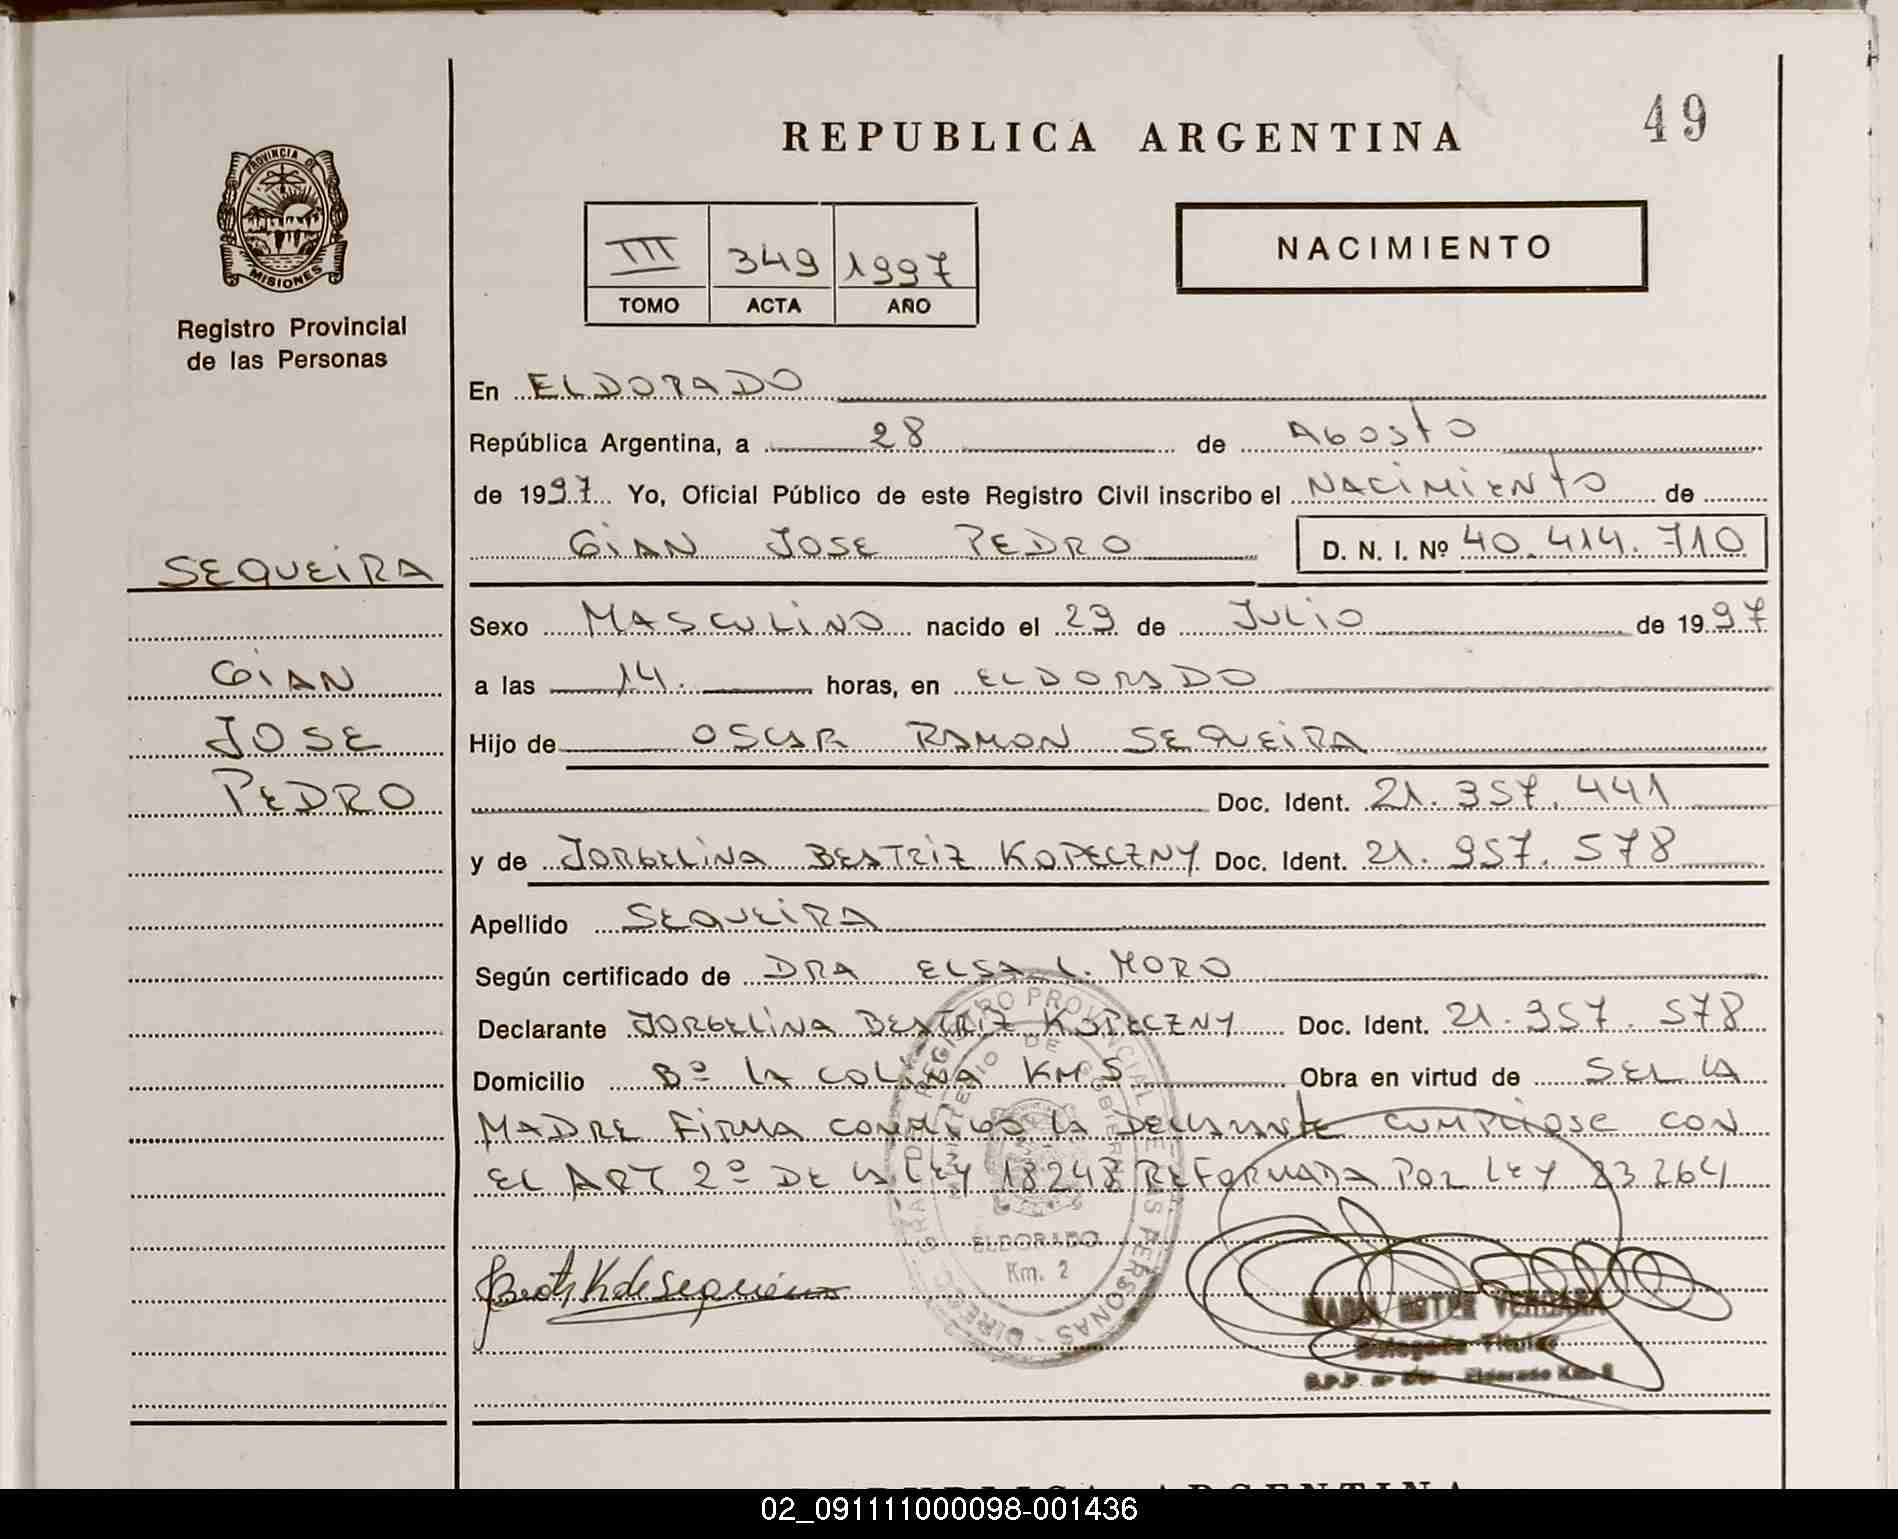 49
REPUBLICA ARGENTINA
PROVINCIA DE
MISIONES
Registro Provincial
de las Personas
III 349 1997
TOMO ACTA AÑO
NACIMIENTO
En ELDORADO
República Argentina, a 28 de AGOSTO
de 1997 Yo, Oficial Público de este Registro Civil inscribo el NACIMIENTO de
GIAN JOSE PEDRO D. N. I. Nº 40.414.710
SEQUEIRA
GIAN
JOSE
PEDRO
Sexo MASCULINO nacido el 29 de JULIO de 1997
a las 14. horas, en ELDORADO
Hijo de OSCAR RAMON SEQUEIRA
Doc. Ident. 21.357.441
y de JORGELINA BEATRIZ KOPECZNY Doc. Ident. 21.957.578
Apellido SEQUEIRA
Según certificado de DRA ELSA L. MORO
Declarante JORGELINA BEATRIZ KOPECZNY Doc. Ident. 21.957.578
Domicilio Bº LA COLINA KM 5 Obra en virtud de SER LA
MADRE FIRMA CONMIGO LA DECLARANTE CUMPLIOSE CON
EL ART 2º DE LA LEY 18248 REFORMADA POR LEY 23264
REGISTRO PROVINCIAL DE LAS PERSONAS
MINISTERIO DE GOBIERNO
ELDORADO
Km. 2
Delegada Titular
Eldorado Km.
REPUBLICA ARGENTINA
02_091111000098-001436